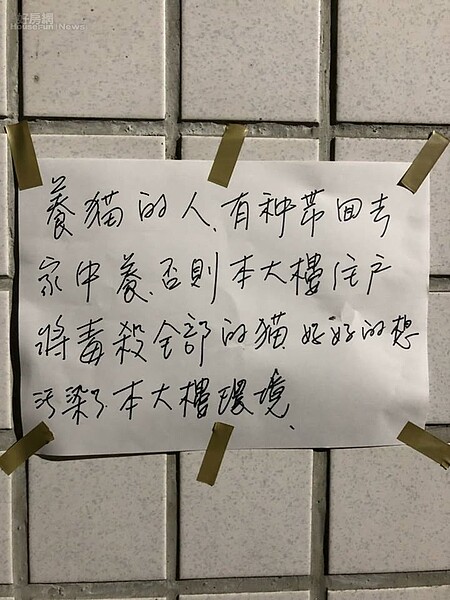 好房網
HouseFun News
養猫的人、有种带回去
家中養、否則本大樓住户
将毒殺全部的猫 好好的想
污染了本大樓環境、